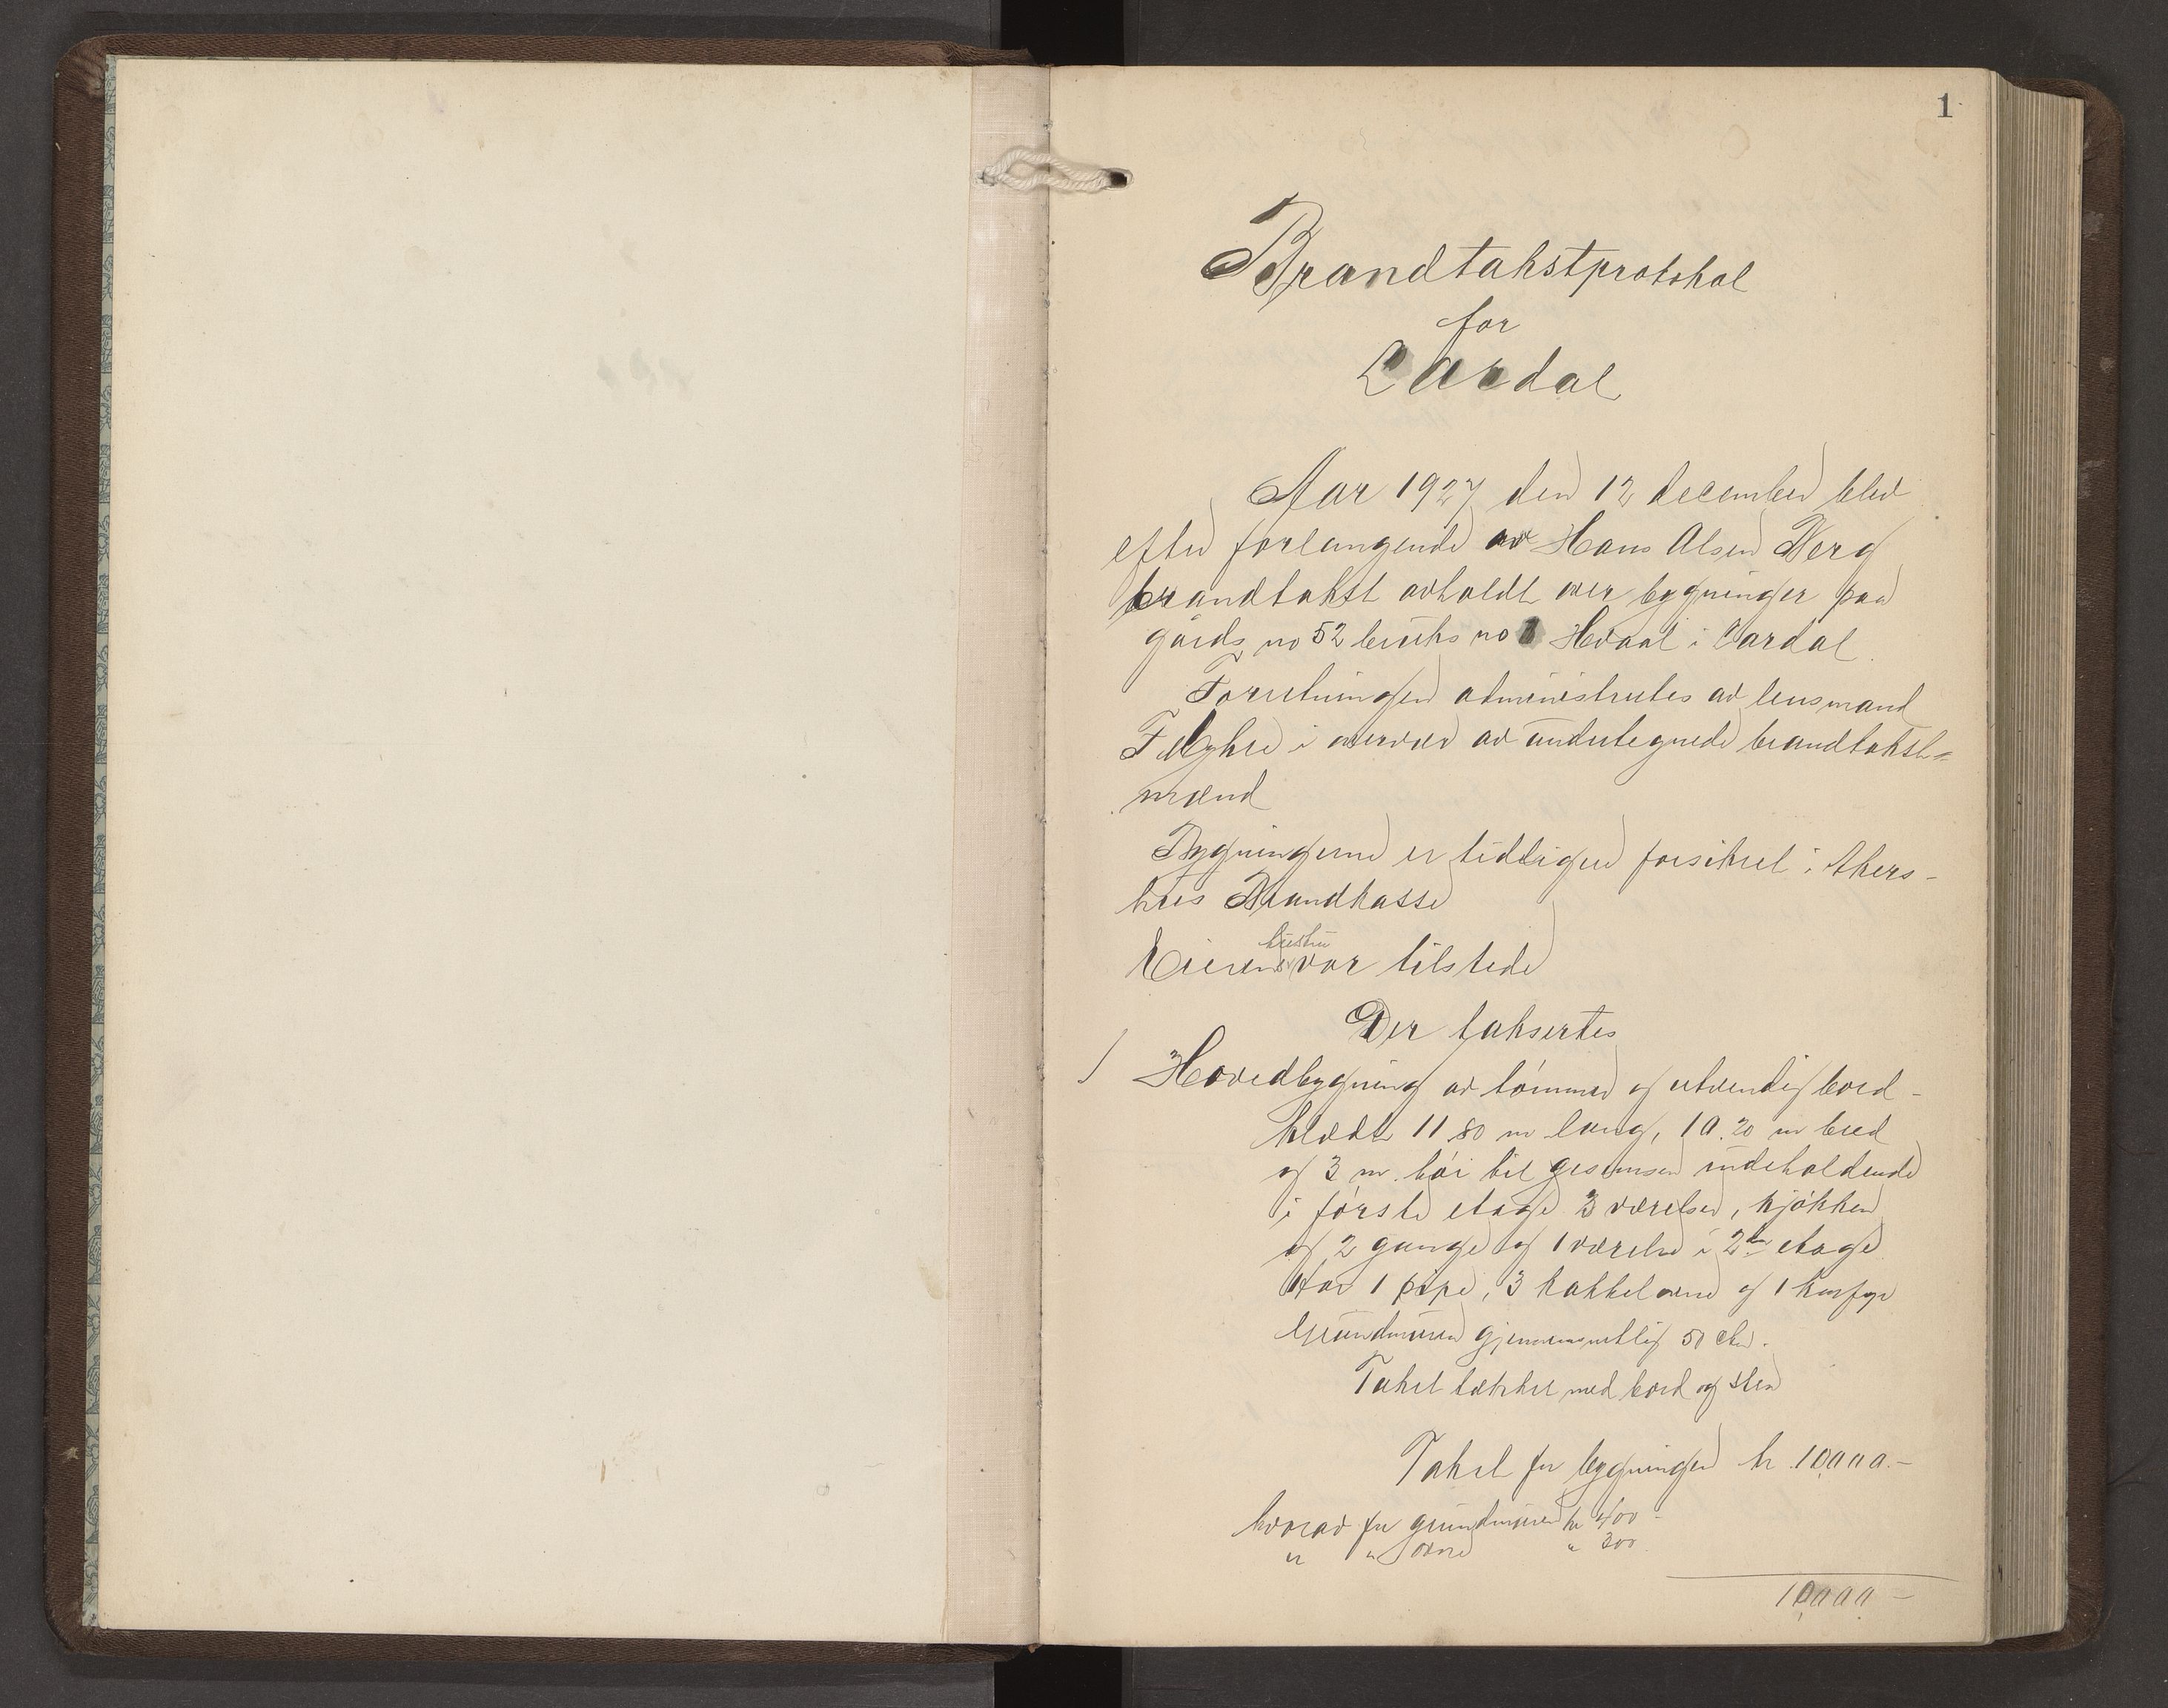 1
Brandtakstprotokol
for
Lardal
Aar 1927 den 12 december blev
efter forlangende av Hans Olsen Berg
brandtakst avholdt over bygninger paa
gårds no 52 bruks no 1 Hvaal i Lardal.
Forretningen administrertes av lensmand
F. Myhre i overvær av undertegnede brandtakst-
mænd
Bygningerne er tidligere forsikret i Akers-
hus Brandkasse
hustru
Eierens var tilstede
Der taksertes
1 Hovedbygning av tømmer og utvendig bord-
klædt 11.80 m lang, 10.20 m bred
og 3 m. høi til gesimsen indeholdende
i første etage 3 værelser, kjøkken
og 2 gange og 1 værelse i 2den etage
Har 1 pipe, 3 kakkelovne og 1 komfyr
Grundmuren gjennemsnitlig 50 cm.
Taket tækket med bord og sten
Takst for bygningen kr 10,000.-
hvorav for grundmuren kr 400-
" " ovne " 300
10,000 -